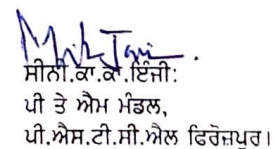 ਸੀਨੀ.ਕਾ.ਕਾ.ਇੰਜੀ:
ਪੀ ਤੇ ਐਮ ਮੰਡਲ,
ਪੀ.ਐਸ.ਟੀ.ਸੀ.ਐਲ ਫਿਰੋਜ਼ਪੁਰ।